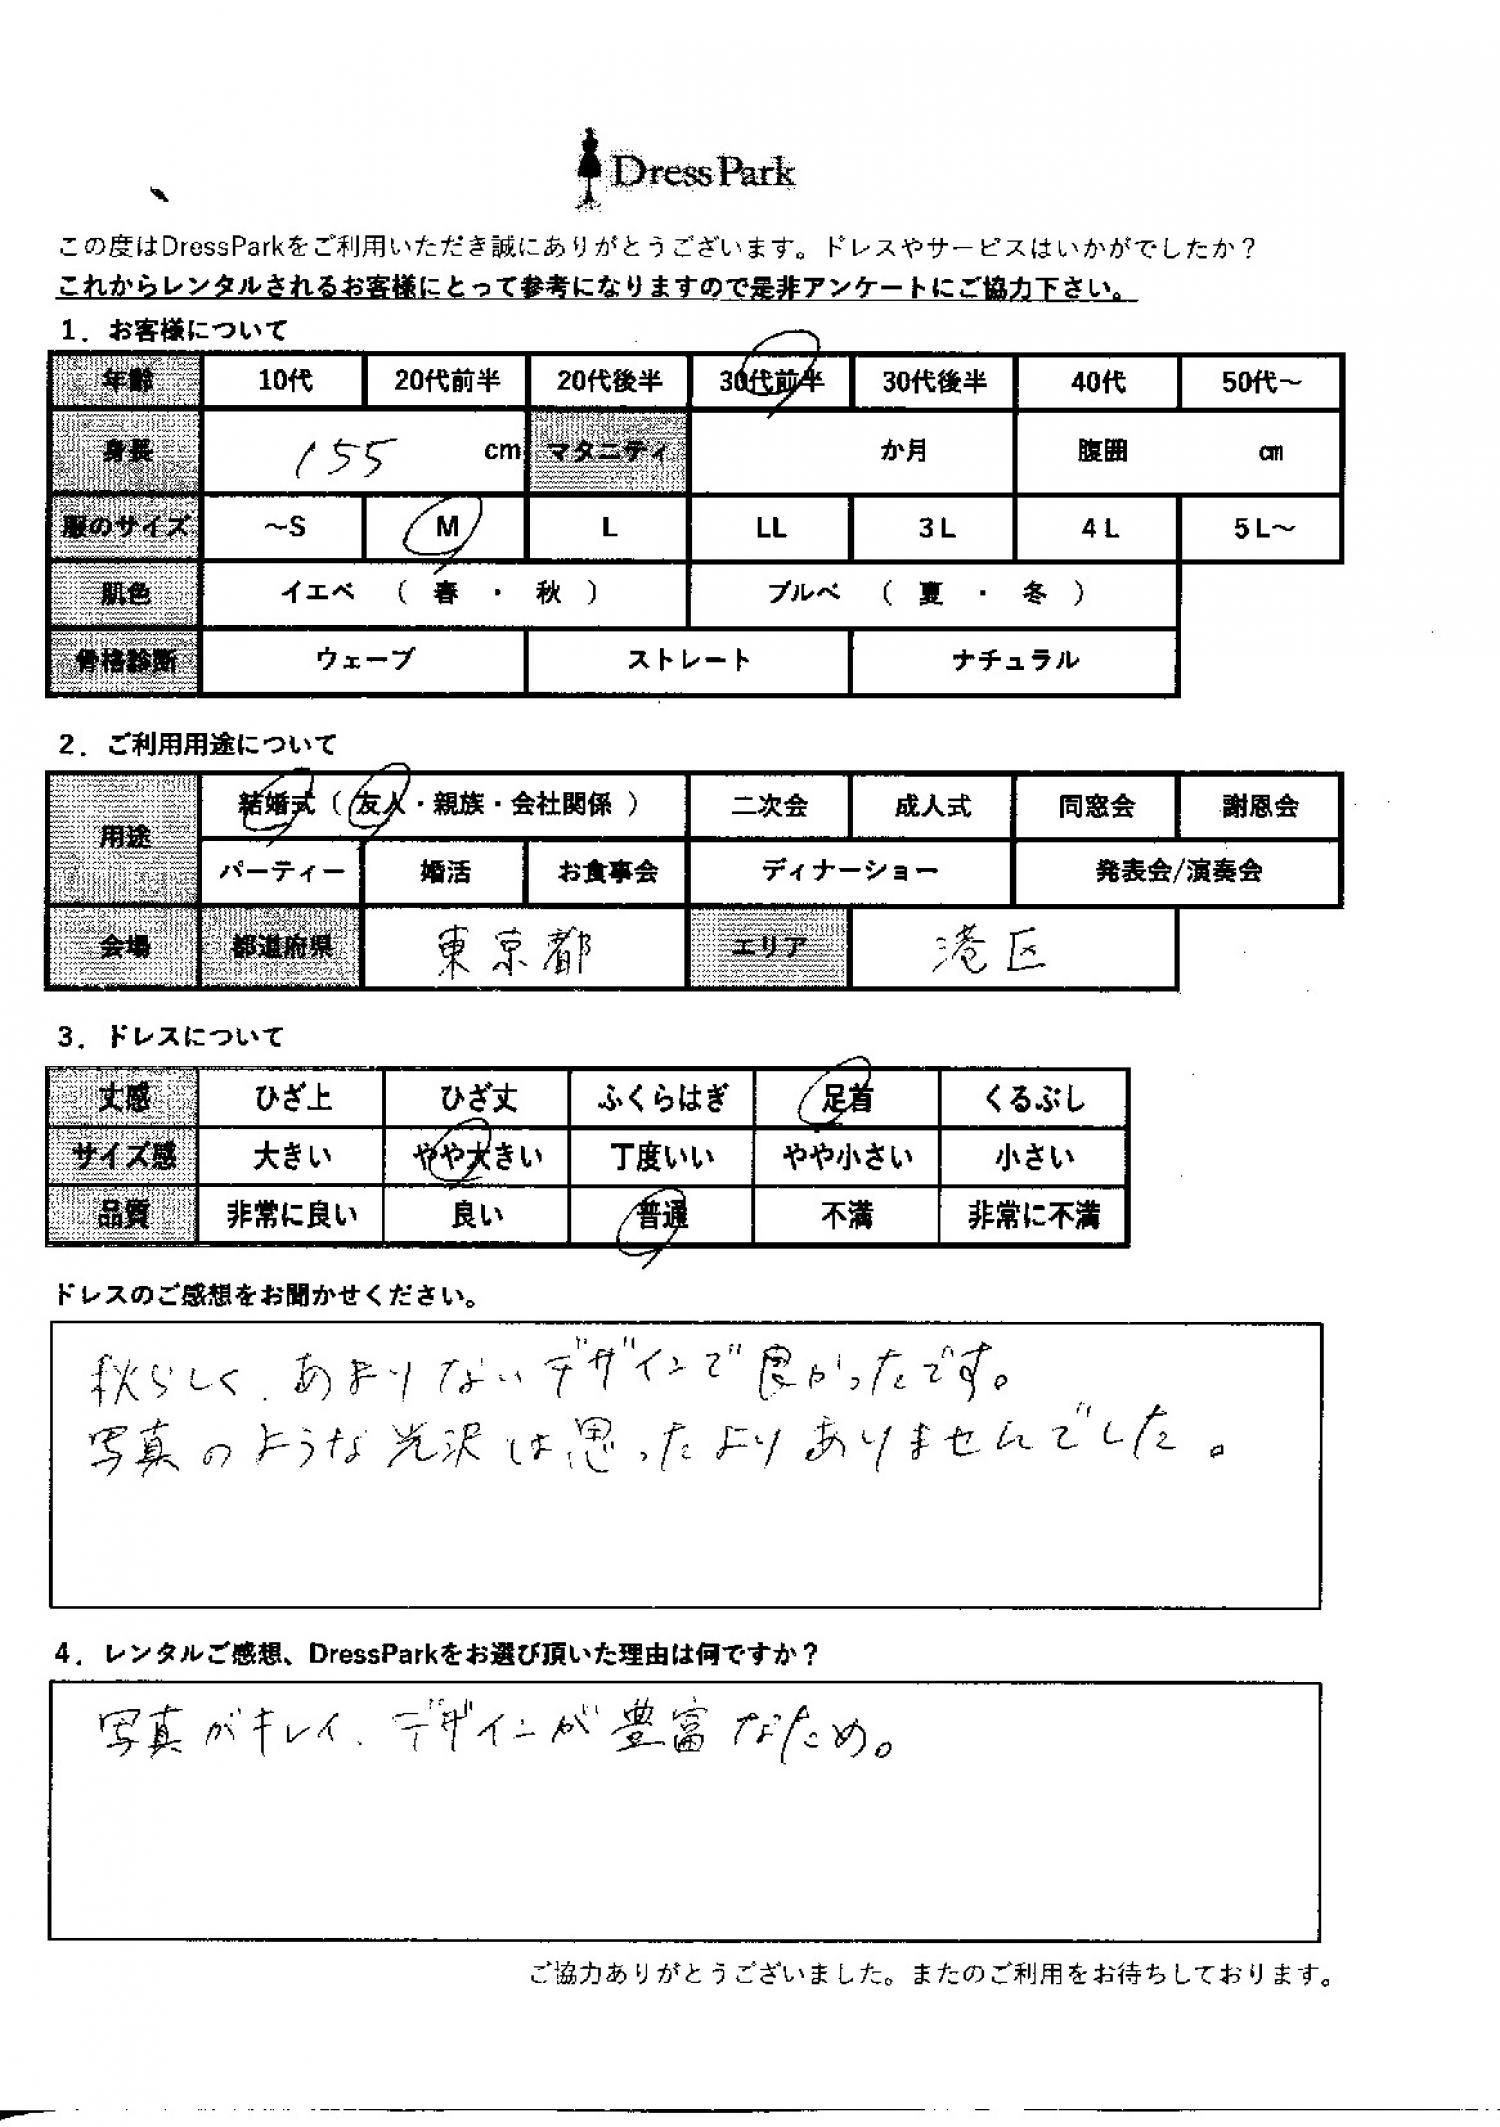 DressPark
この度はDressParkをご利用いただき誠にありがとうございます。ドレスやサービスはいかがでしたか？
これからレンタルされるお客様にとって参考になりますので是非アンケートにご協力下さい。
1．お客様について
年齢 10代 20代前半 20代後半 30代前半 30代後半 40代 50代～
身長 155 cm マタニティ か月 腹囲 cm
服のサイズ ～S M L LL 3L 4L 5L～
肌色 イエベ （ 春 ・ 秋 ） ブルベ （ 夏 ・ 冬 ）
骨格診断 ウェーブ ストレート ナチュラル
2．ご利用用途について
用途 結婚式（ 友人・親族・会社関係 ） 二次会 成人式 同窓会 謝恩会
パーティー 婚活 お食事会 ディナーショー 発表会/演奏会
会場 都道府県 東京都 エリア 港区
3．ドレスについて
丈感 ひざ上 ひざ丈 ふくらはぎ 足首 くるぶし
サイズ感 大きい やや大きい 丁度いい やや小さい 小さい
品質 非常に良い 良い 普通 不満 非常に不満
ドレスのご感想をお聞かせください。
秋らしく、あまりないデザインで良かったです。
写真のような光沢は思ったよりありませんでした。
4．レンタルご感想、DressParkをお選び頂いた理由は何ですか？
写真がキレイ、デザインが豊富なため。
ご協力ありがとうございました。またのご利用をお待ちしております。